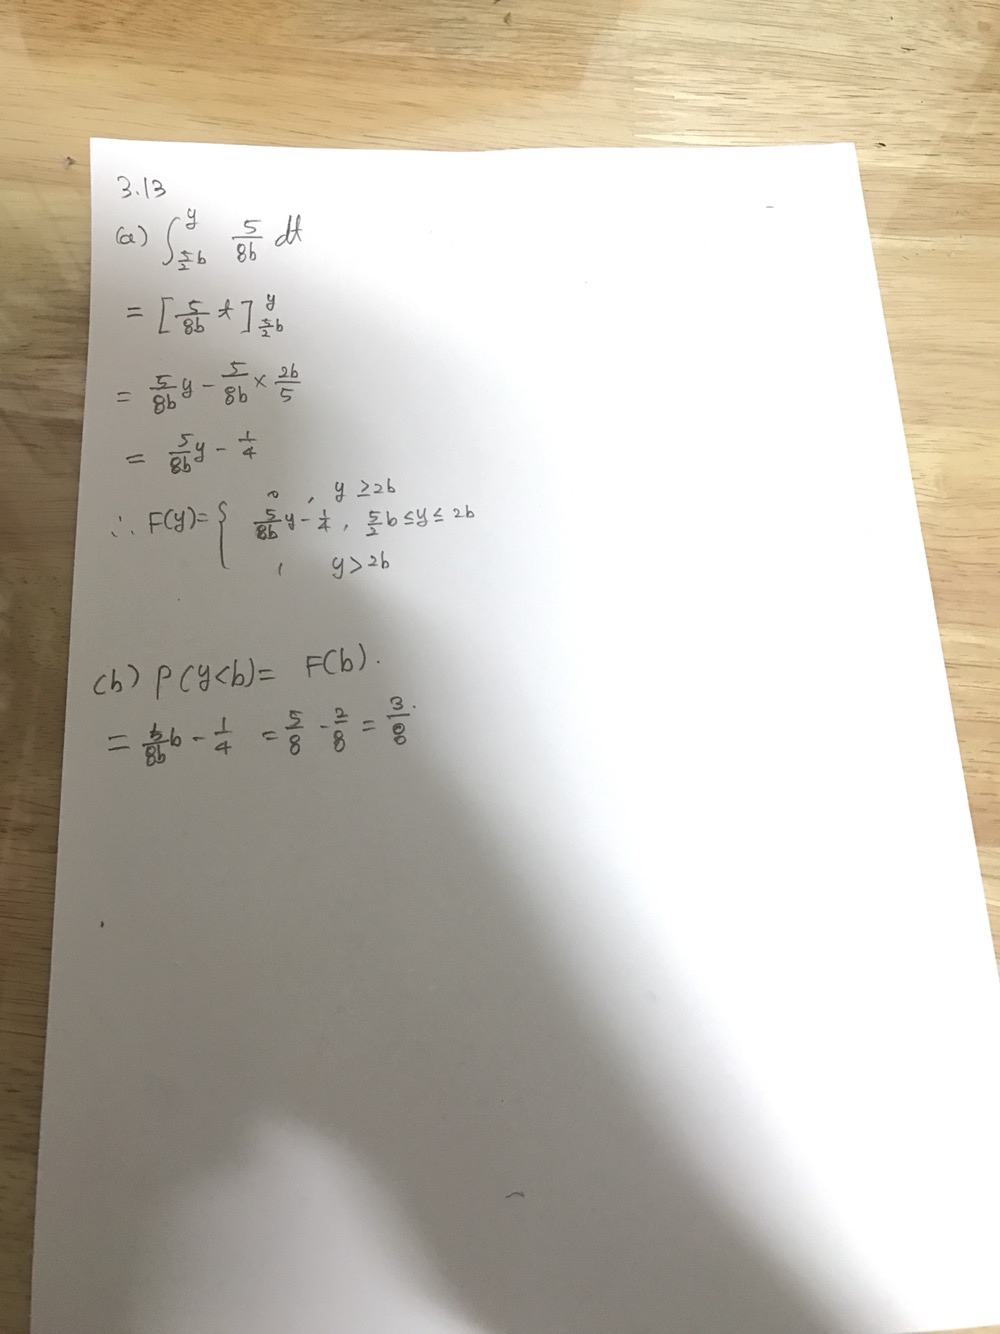 3.13
(a) ∫_{5/2 b}^{y} 5/8b dt
= [5/8b t]_{5/2 b}^{y}
= 5/8b y - 5/8b × 2b/5
= 5/8b y - 1/4
∴ F(y) = { 0 , y ≥ 2b
5/8b y - 1/4 , 5/2 b ≤ y ≤ 2b
1 y > 2b
(b) P(y<b) = F(b).
= 5/8b b - 1/4 = 5/8 - 2/8 = 3/8.